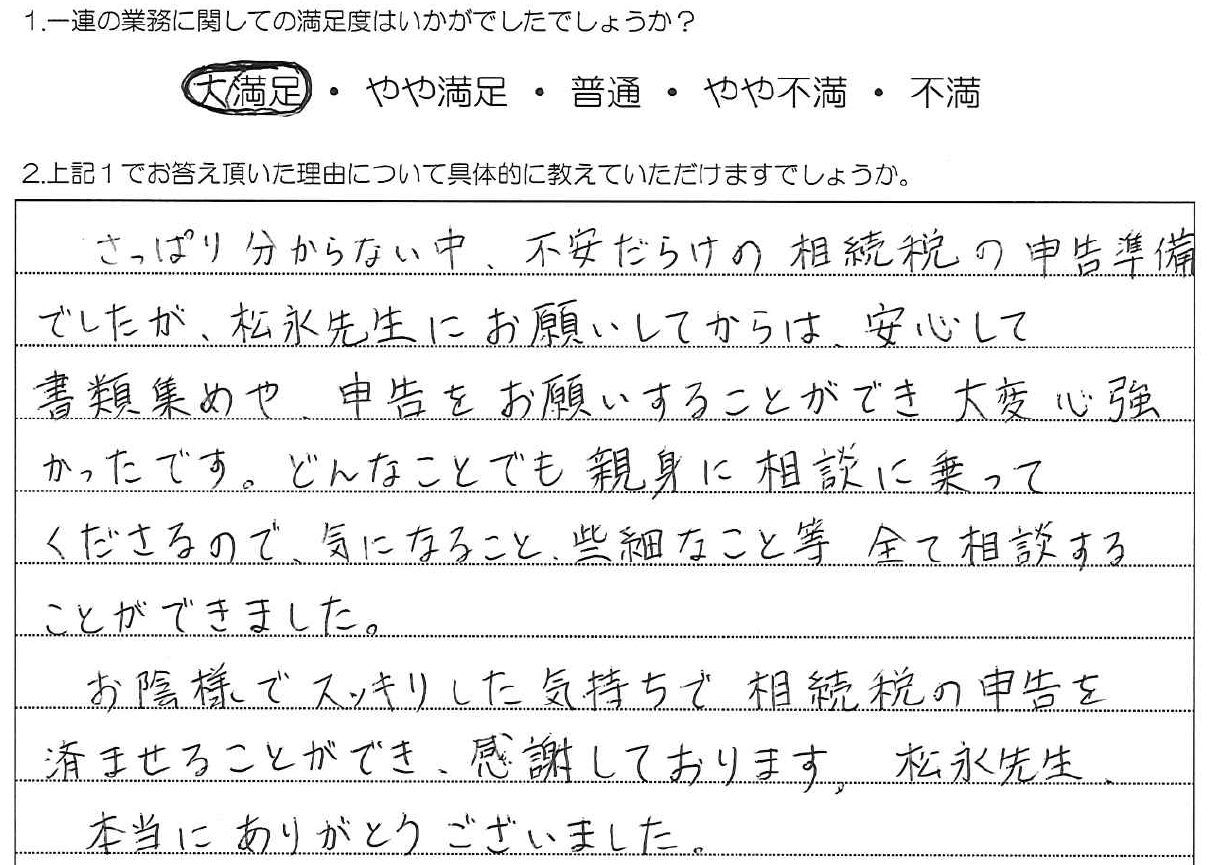 1.一連の業務に関しての満足度はいかがでしたでしょうか？
大満足 ・ やや満足 ・ 普通 ・ やや不満 ・ 不満
2.上記１でお答え頂いた理由について具体的に教えていただけますでしょうか。
さっぱり分からない中、不安だらけの相続税の申告準備
でしたが、松永先生にお願いしてからは、安心して
書類集めや、申告をお願いすることができ大変心強
かったです。どんなことでも親身に相談に乗って
くださるので、気になること、些細なこと等全て相談する
ことができました。
お陰様でスッキリした気持ちで相続税の申告を
済ませることができ、感謝しております。松永先生、
本当にありがとうございました。